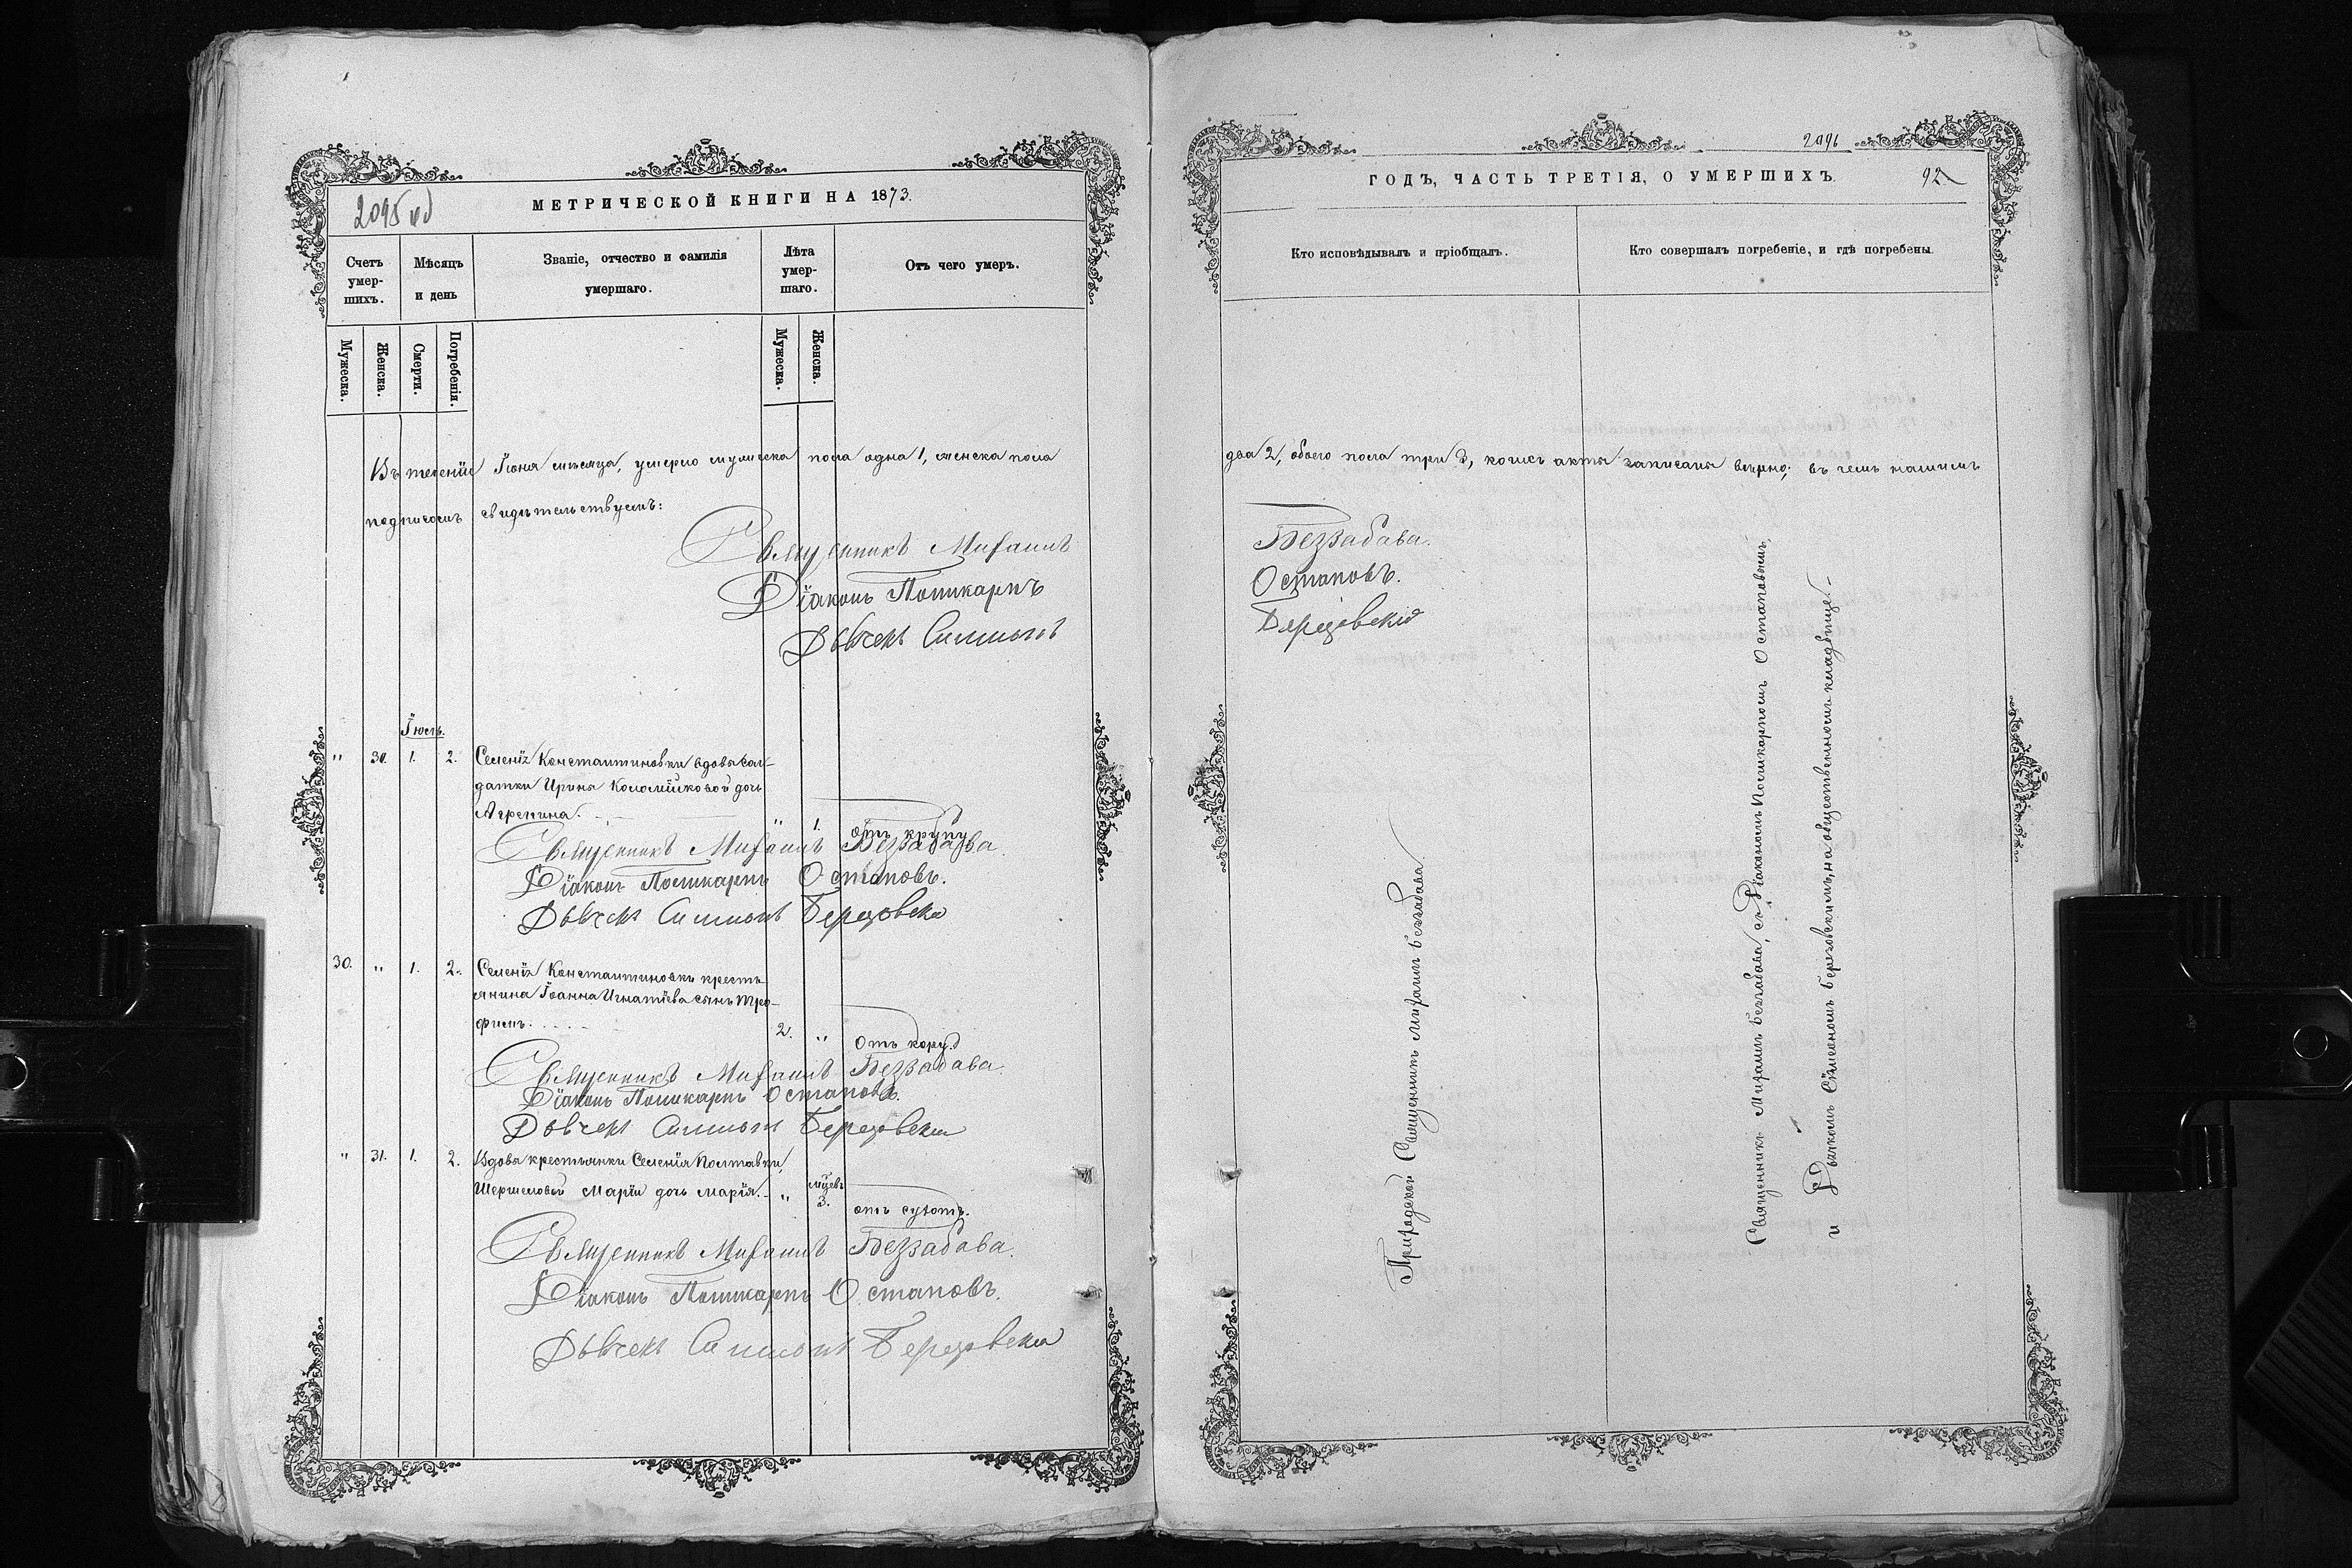 2095 об
МЕТРИЧЕСКОЙ КНИГИ НА 1873.
Счетъ умер-шихъ.
Мѣсяцъ и день
Званіе, отчество и фамилія умершаго.
Лѣта умер-шаго.
Отъ чего умеръ.
Мужеска.
Женска.
Смерти.
Погребенія.
Мужеска.
Женска.
Въ теченіи Іюня мѣсяца, умерло мужеска пола одна 1, женска пола
подписомъ свидѣтельствуемъ:
Священникъ Михаилъ
Діаконъ Поликарпъ
Дьячекъ Симеонъ
Іюль.
" 30. 1. 2. Селенія Константиновки вдовы сол-
датки Ирины Коломійковой дочь
Агрепина. " 1. отъ крупу
Священникъ Михаилъ Беззабава.
Діаконъ Поликарпъ Остаповъ.
Дьячекъ Симеонъ Березовскій
30. " 1. 2. Селенія Константиновкы кресть
янина Іоанна Игнатіева сынъ Тро-
фимъ. 2. " Отъ кору.
Священникъ Михаилъ Беззабава.
Діаконъ Поликарпъ Остаповъ.
Дьячекъ Симеонъ Березовскій
" 31. 1. 2. Вдовы крестьянки Селенія Полтавки,
Шершеловой Маріи дочь Марія. " 3. отъ сухотъ.
Священникъ Михаилъ Беззабава.
Діаконъ Поликарпъ Остаповъ.
Дьячекъ Симеонъ Березовскій
2096
ГОДЪ, ЧАСТЬ ТРЕТІЯ, О УМЕРШИХЪ.
92
Кто исповѣдывалъ и пріобщалъ.
Кто совершалъ погребеніе, и гдѣ погребены.
два 2, обоего пола три 3, коихъ акты записаны вѣрно; въ чемъ нашимъ
Беззабава.
Остаповъ.
Березовскій
Священникъ Михаилъ Беззабава
Священникъ Михаилъ Беззабава, съ Діакономъ Поликарпомъ Остаповымъ,
и Дьячкомъ Симеономъ Березовскимъ, на общественномъ кладбищѣ.